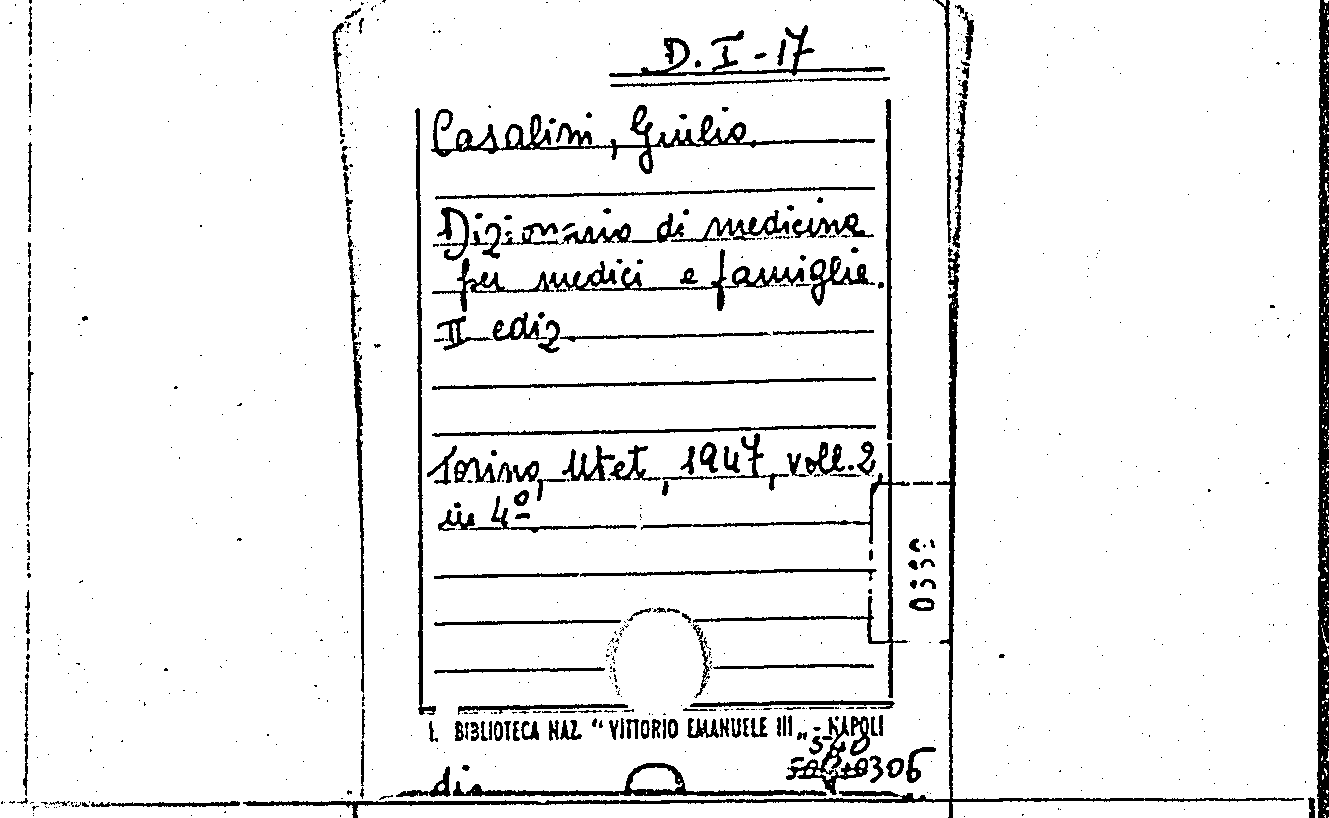 D. I - 17
Casalini, Giulio.
Dizionario di medicina
per medici e famiglie.
II ediz.
Torino, Utet, 1947, voll. 2,
in 4º
1. BIBLIOTECA NAZ. "VITTORIO EMANUELE III„ - NAPOLI
540
0306